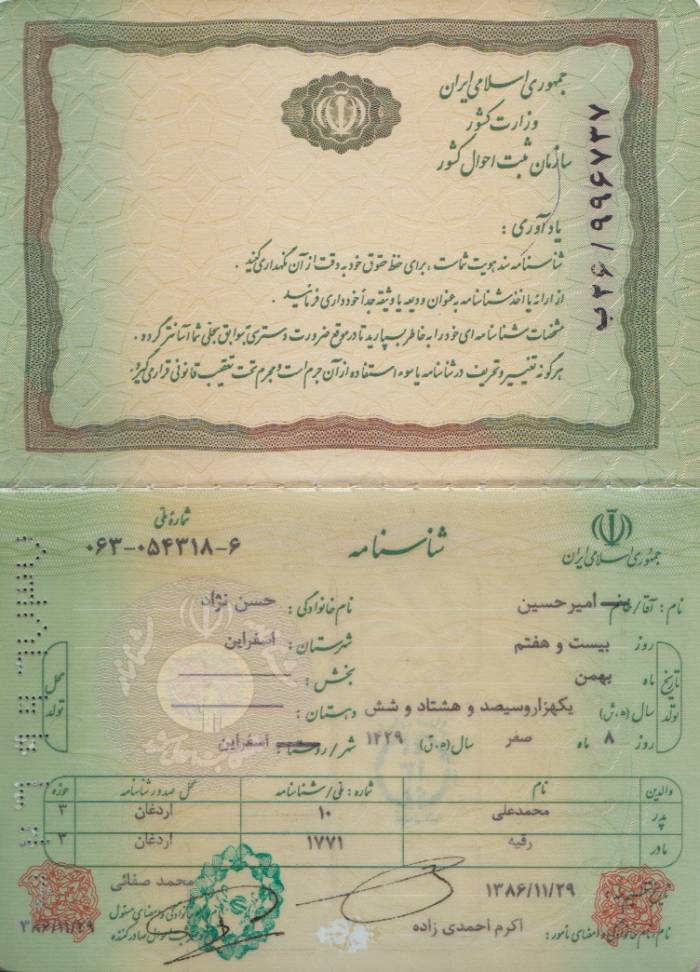 جمهوری اسلامی ایران
وزارت کشور
سازمان ثبت احوال کشور
ب۲۶/۹۹۶۷۳۷
یادآوری :
شناسنامه سند هویت شماست ، برای حفظ حقوق خود به دقت از آن نگهداری کنید .
از ارائه یا اخذ شناسنامه به عنوان ودیعه یا وثیقه جداً خودداری فرمائید .
مشخصات شناسنامه ای خود را به خاطر بسپارید تا در موقع ضرورت دسترسی به سوابق سجلی شما آسانتر گردد .
هرگونه تغییر و تحریف در شناسنامه یا سوء استفاده از آن جرم است و مجرم تحت تعقیب قانونی قرار می گیرد .
جمهوری اسلامی ایران
شناسنامه
شماره ملی
۰۶۳-۰۵۴۳۱۸-۶
نام : آقا/ امیرحسین نام خانوادگی : حسن نژاد
تاریخ تولد
روز بیست و هفتم شهرستان : اسفراین
ماه بهمن بخش :
سال (ه.ش) یکهزاروسیصد و هشتاد و شش دهستان :
روز ۸ ماه صفر سال (ه.ق) ۱۴۲۹ شهر/روستا : اسفراین
محل تولد
والدین نام شماره : ملی/شناسنامه محل صدور شناسنامه حوزه
پدر محمدعلی ۱۰ اردغان ۳
مادر رقیه ۱۷۷۱ اردغان ۳
۱۳۸۶/۱۱/۲۹ محمد صفائی
نام و نام خانوادگی و امضای مامور : اکرم احمدی زاده
۱۳۸۶/۱۱/۲۹